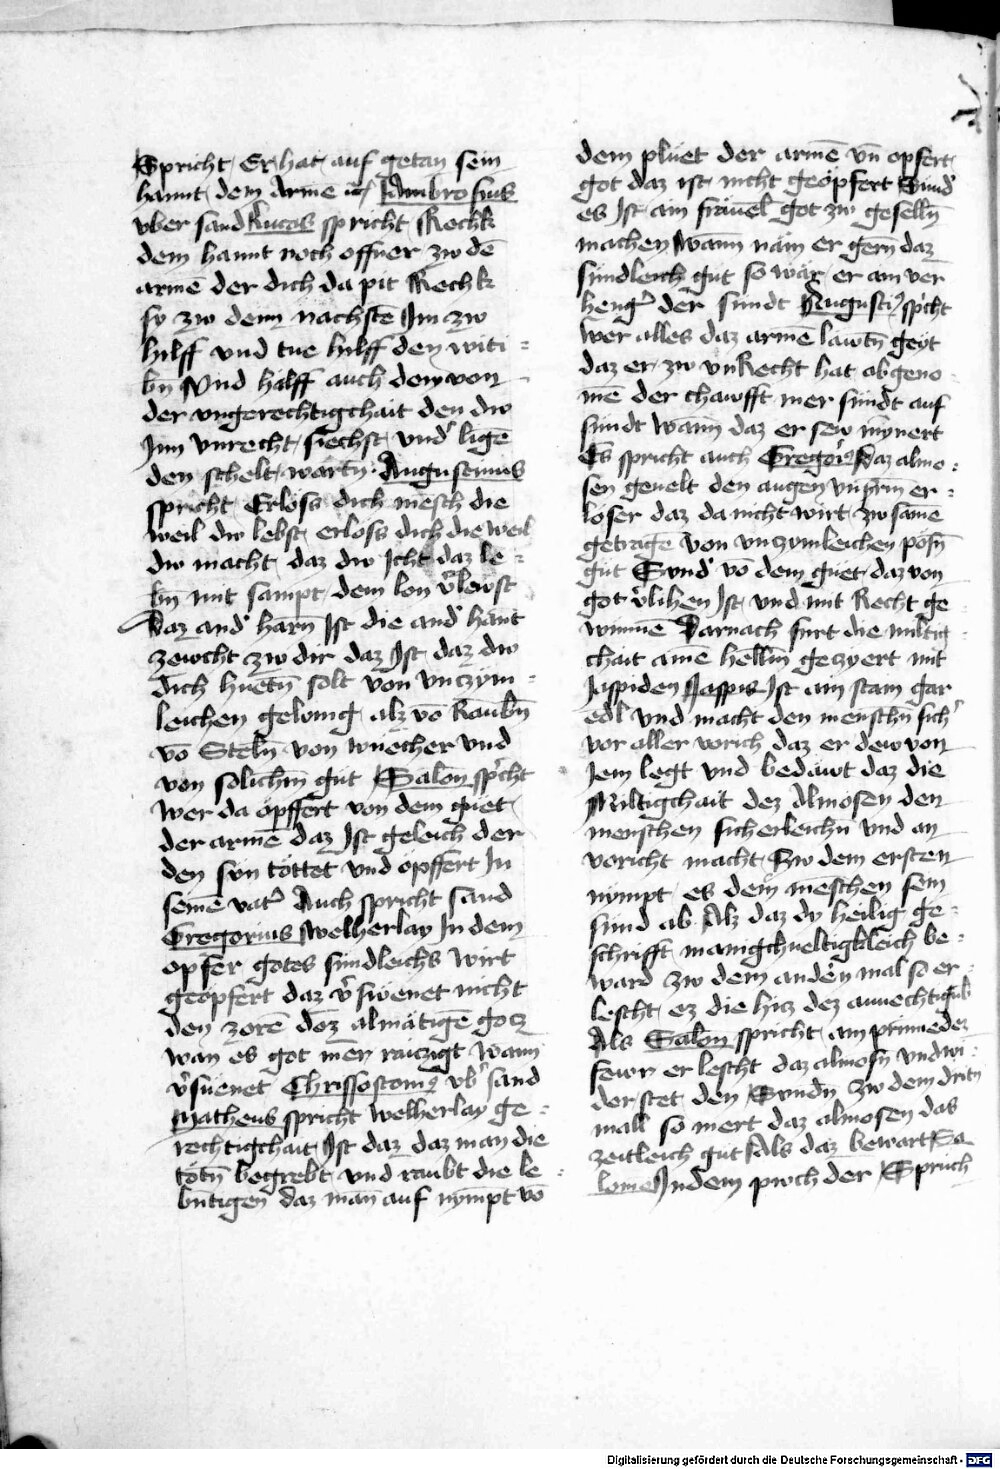 Spricht Er hat auf getan sein
hannt dem Arme Ambrosius
vber sand Lucas spricht Rechk
dem hannt noch offner zw dē
armē der dich da pit Rechk
sy zw dem nachstē Im zw
hilff vnd tue hilff den witi
bn Vnd halff auch dem von
der vngerechtigchait den dw
Inn vnrecht siechst vnd' ligē
den schelt wartn̄ Augustinus
spricht Erloss dich mēsch die
weil dw lebst erloss dich die weil
dw macht daz dw Icht daz le
bn mit sampt dem lon v'lewst
Daz and' harn Ist die and' hant
zewcht zw dir daz Ist daz dw
dich huetn̄ solt von vnczym
leichen gelonig alz vō Raubn̄
vō Steln̄ von wuecher vnd
von solichm gut Salon sp'cht
Wer da opffert von dem guet
der armē daz Ist geleich der
den svn tottet vnd opffert In
seinē vat' Auch spricht sand
Gregorius Welherlay In dem
opfer gotes sundleichs wirt
geopfert daz v'swenet nicht
den zorē dez almātigē gotz
wan es got mer raiczigt wann
v'suenet Chrissostom9 vb' sand
Matheus spricht welherlay ge
rechtigchait Ist daz daz man die
totn̄ begrebt vnd raubt die le
bn̄tigen daz man auf nympt vō
dem pluet der armē vn̄ opfert
got daz ist nicht geopfert Sund'
es Ist am frauel got zw geselln̄
machen Wann nām er gern daz
sundleich gut so wār er am ver
heng' der sundt Augusti9 sp'cht
wer alles daz armē lawtn̄ geit
daz er zw vnRecht hat abgeno
mē der chawfft mer sundt auf
sundt wann daz er sew mynert
Es spricht auch Gregori9 Daz almo
sen geuelt den augen vnsrm er
loser daz da nicht wirt zw samē
getragē von vnzymleichen posn̄
gut Svnd' vō dem guet daz von
got v'lihen Ist vnd mit Recht ge
winnē Darnach furt die miltig
chait amē hellm̄ geczyert mit
Jaspiden Jaspis Ist ain stam gar
edl vnd macht den menschn̄ sich'
vor aller vorich daz er dew von
Jem legt vnd bedawt daz die
Miltigchait dez Almosen den
menschen sicherleichn̄ vnd an
voricht macht Zw dem ersten
nympt es dem mēschen sein
sund ab Alz daz dy heilig ge
schrifft manigchueltigkleich be
ward zw dem anden̄ mal so er
lescht ez die hicz dez
Als Salon spricht am prinnedez
fewr er lescht daz almosn̄ vnd wi
derstet den Svndn̄ zw dem dritn̄
mall so mert daz almosen das
zeitleich gut Als daz bewart Sa
lome In dem pwch der Spruch
Digitalisierung gefördert durch die Deutsche Forschungsgemeinschaft - DFG